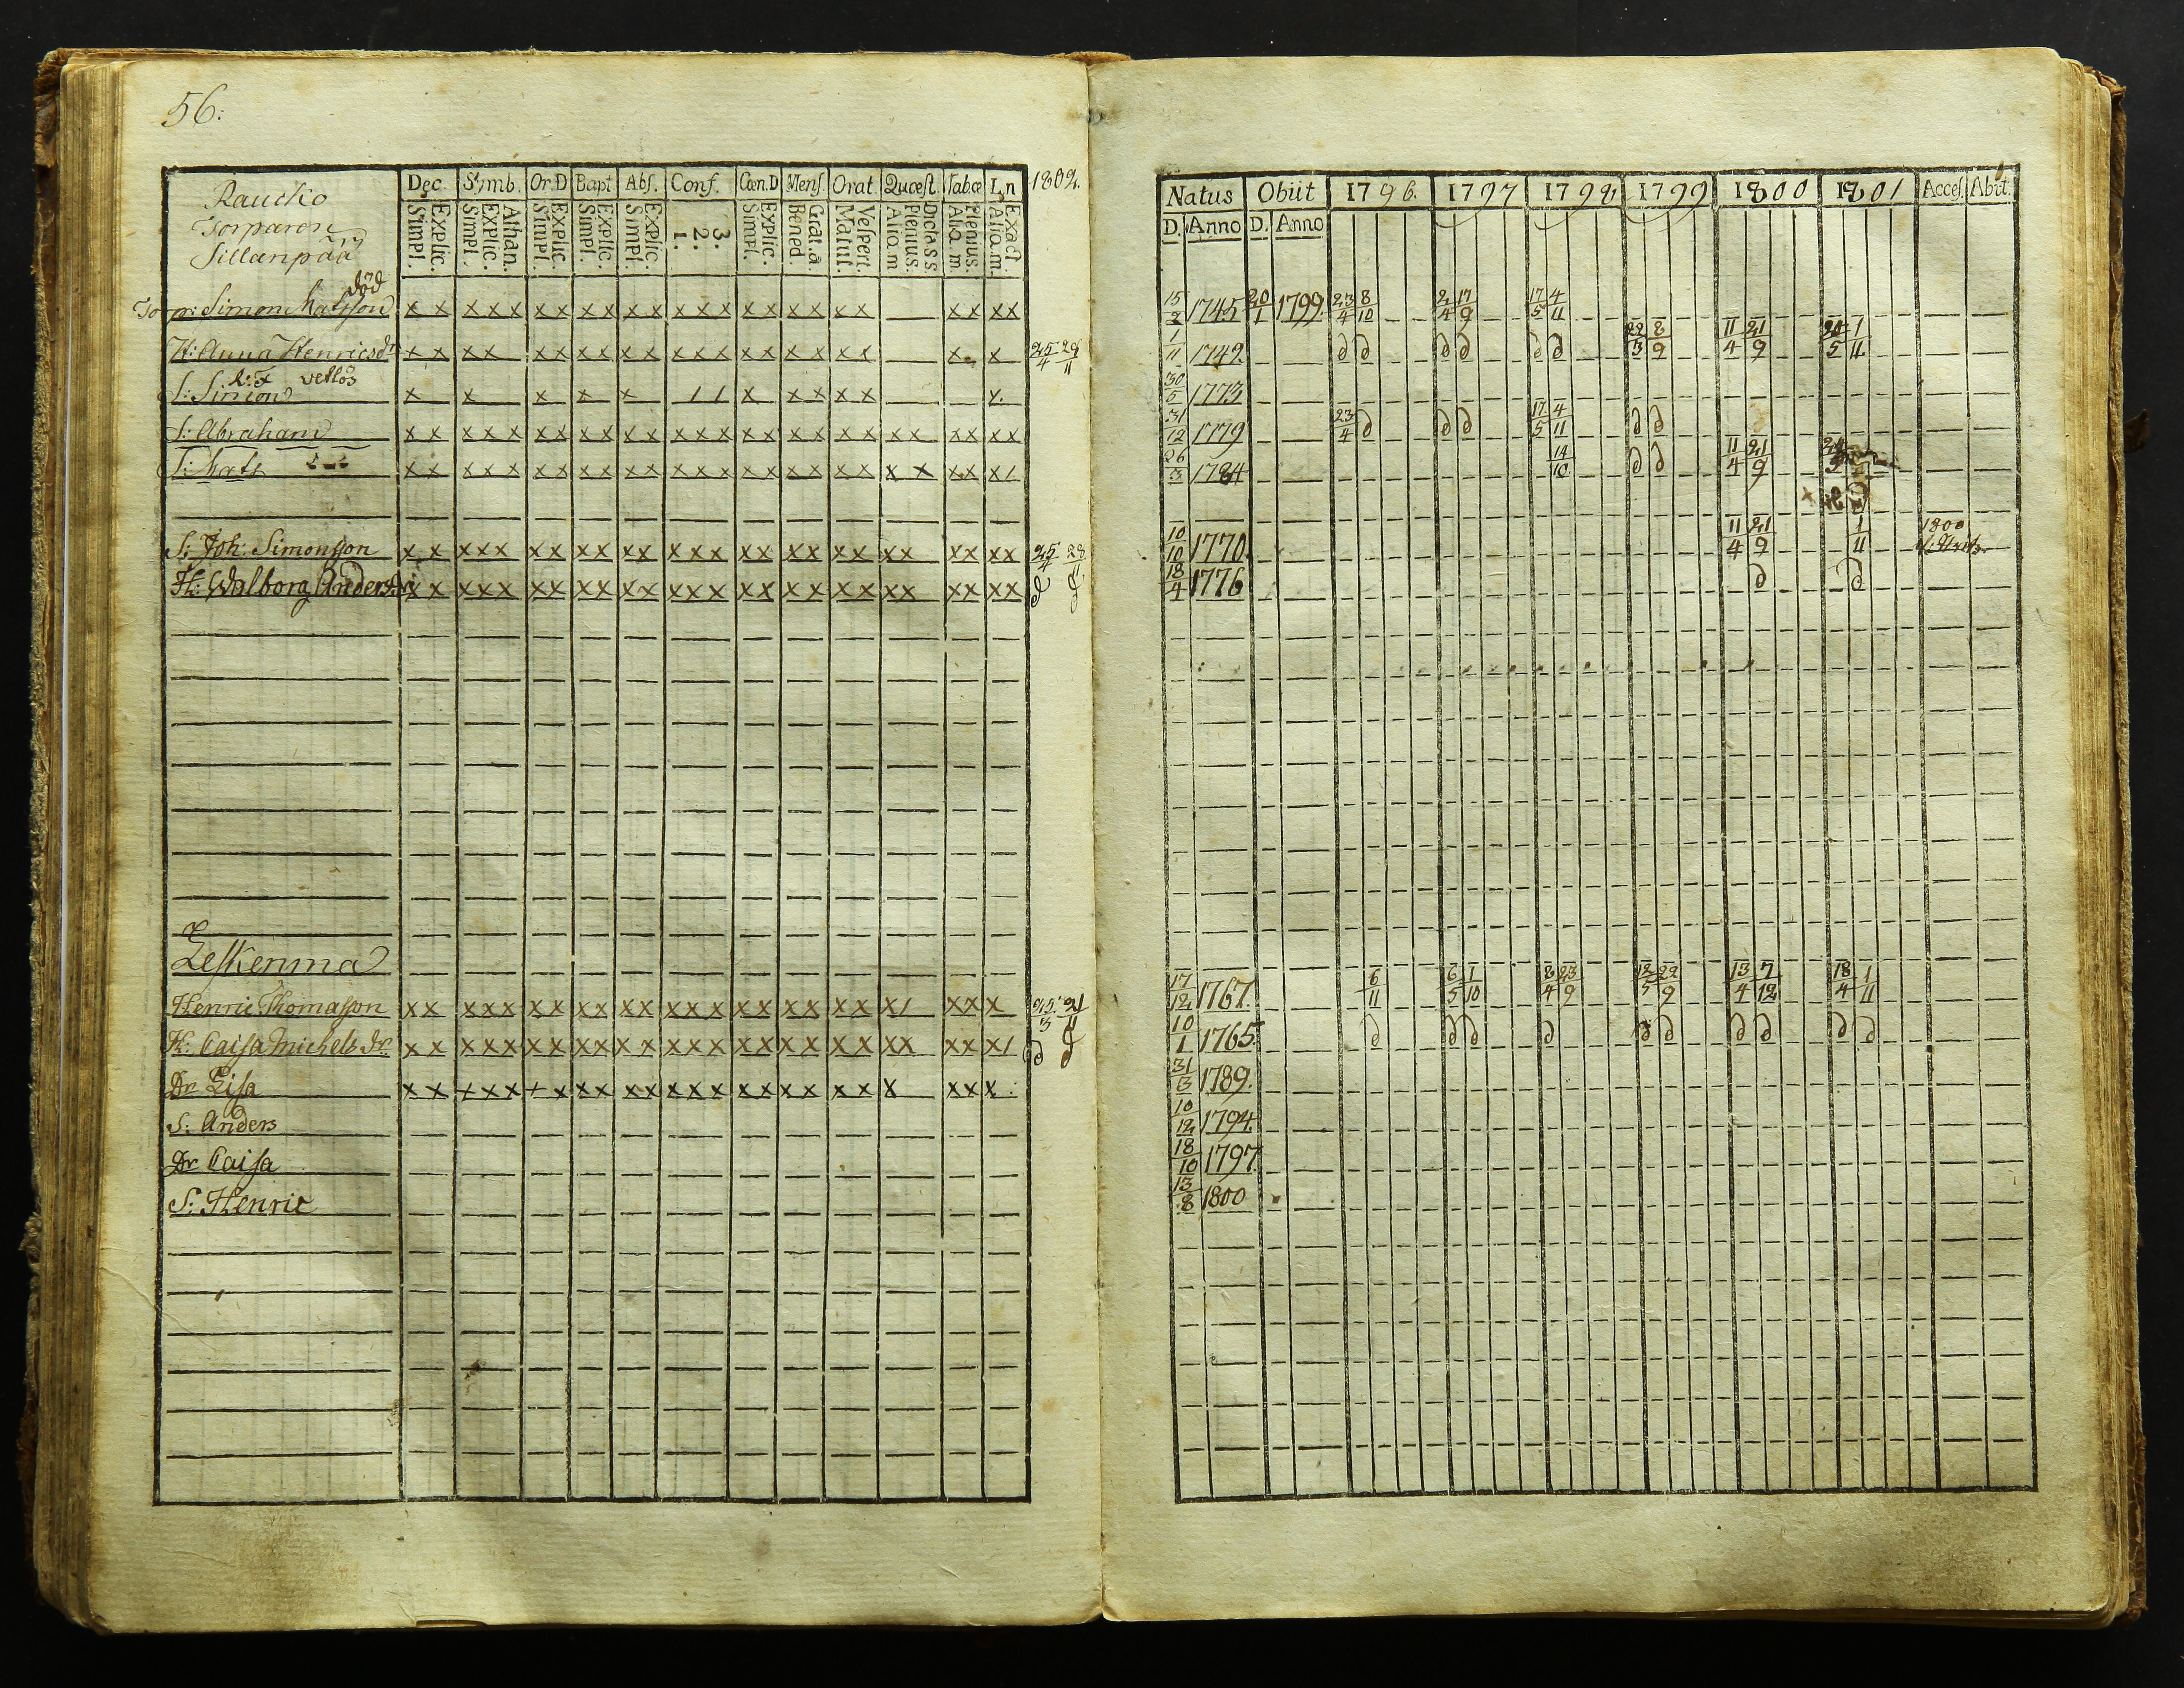 56:
Dec. Symb. Or.D Bapt. Abs. Conf. Cœn.D Mens. Orat. Quœst. Tabœ Ln 1802.
Explic. Simpl. Athan. Explic. Simpl. Explic. Simpl. Explic. Simpl. Explic. Simpl. 3. 2. 1. Explic. Simpl. Grat.a. Bened. Vespert. Matut. Dicta s s Plenius. Aliq.m Plenius. Aliq.m. Exact. Aliq.m.
Raucko
Torparen
Sillanpää
död
Torp: Simon Matsson x x x x x x x x x x x x x x x x x x x x x x x x
H: Anna Henricsdr x x x x x x x x x x x x x x x x x x x x 25/4 28/11
vettlös
S: Simon x x x x x / / x x x x x x.
S: Abraham x x x x x x x x x x x x x x x x x x x x x x x x x x
S: Mats x x x x x x x x x x x x x x x x x x x x x x x x x /
S: Joh: Simonsson x x x x x x x x x x x x x x x x x x x x x x x x x x 25/4 28/11
H: Walborg Andersdr x x x x x x x x x x x x x x x x x x x x x x x x x x d d
Leskenma
Henric Thomasson x x x x x x x x x x x x x x x x x x x x x / x x x 25/3 21/11
H: Caisa Michelsdr. x x x x x x x x x x x x x x x x x x x x x x x x x / d d
Dr Lisa x x + x x + x x x x x x x x x x x x x x x x x x x
S: Anders
Dr Caisa
S: Henric
Natus Obiit 1796. 1797 1798 1799 1800 1801 Acces. Abit.
D. Anno D. Anno
15/2 1745 20/1 1799. 23/4 8/10 2/4 17/9 17/5 4/11
1/11 1749. d d d d d d 22/3 8/9 11/4 21/9 20/5 1/11
30/5 1773
31/12 1779 23/4 d d d 17/5 4/11 d d
26/3 1784 14/10 d d 11/4 21/9
10/10 1770. 11/4 21/9 1/11 1800
18/4 1776 d d
17/12 1767. 6/11 6/5 1/10 8/4 23/9 18/5 22/9 13/4 7/12 18/4 1/11
10/1 1765 d d d d d d d d d d
31/3 1789.
10/12 1794.
18/10 1797
13/8 1800